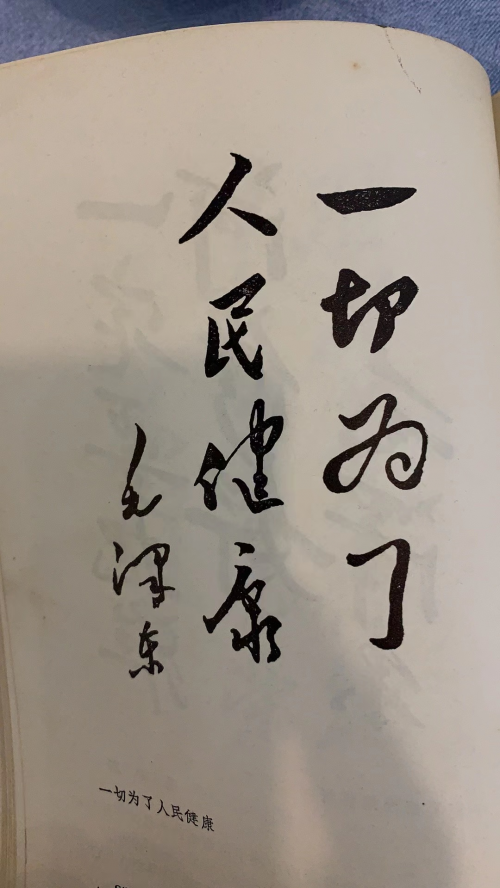 一切为了
人民健康
毛泽东
一切为了人民健康